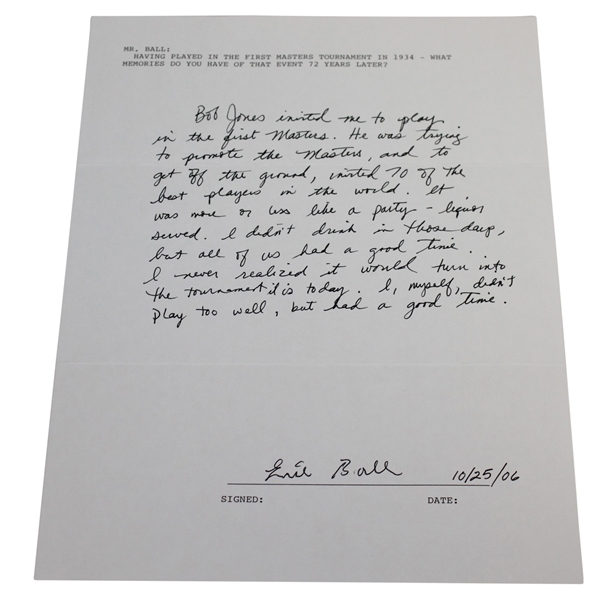 MR. BALL:
HAVING PLAYED IN THE FIRST MASTERS TOURNAMENT IN 1934 - WHAT
MEMORIES DO YOU HAVE OF THAT EVENT 72 YEARS LATER?
Bob Jones invited me to play
in the first Masters. He was trying
to promote the Masters, and to
get off the ground, invited 70 of the
best players in the world. It
was more or less like a party - liquor
served. I didn't drink in those days,
but all of us had a good time.
I never realized it would turn into
the tournament it is today. I, myself, didn't
play too well, but had a good time.
Eric Ball 10/25/06
SIGNED: DATE: